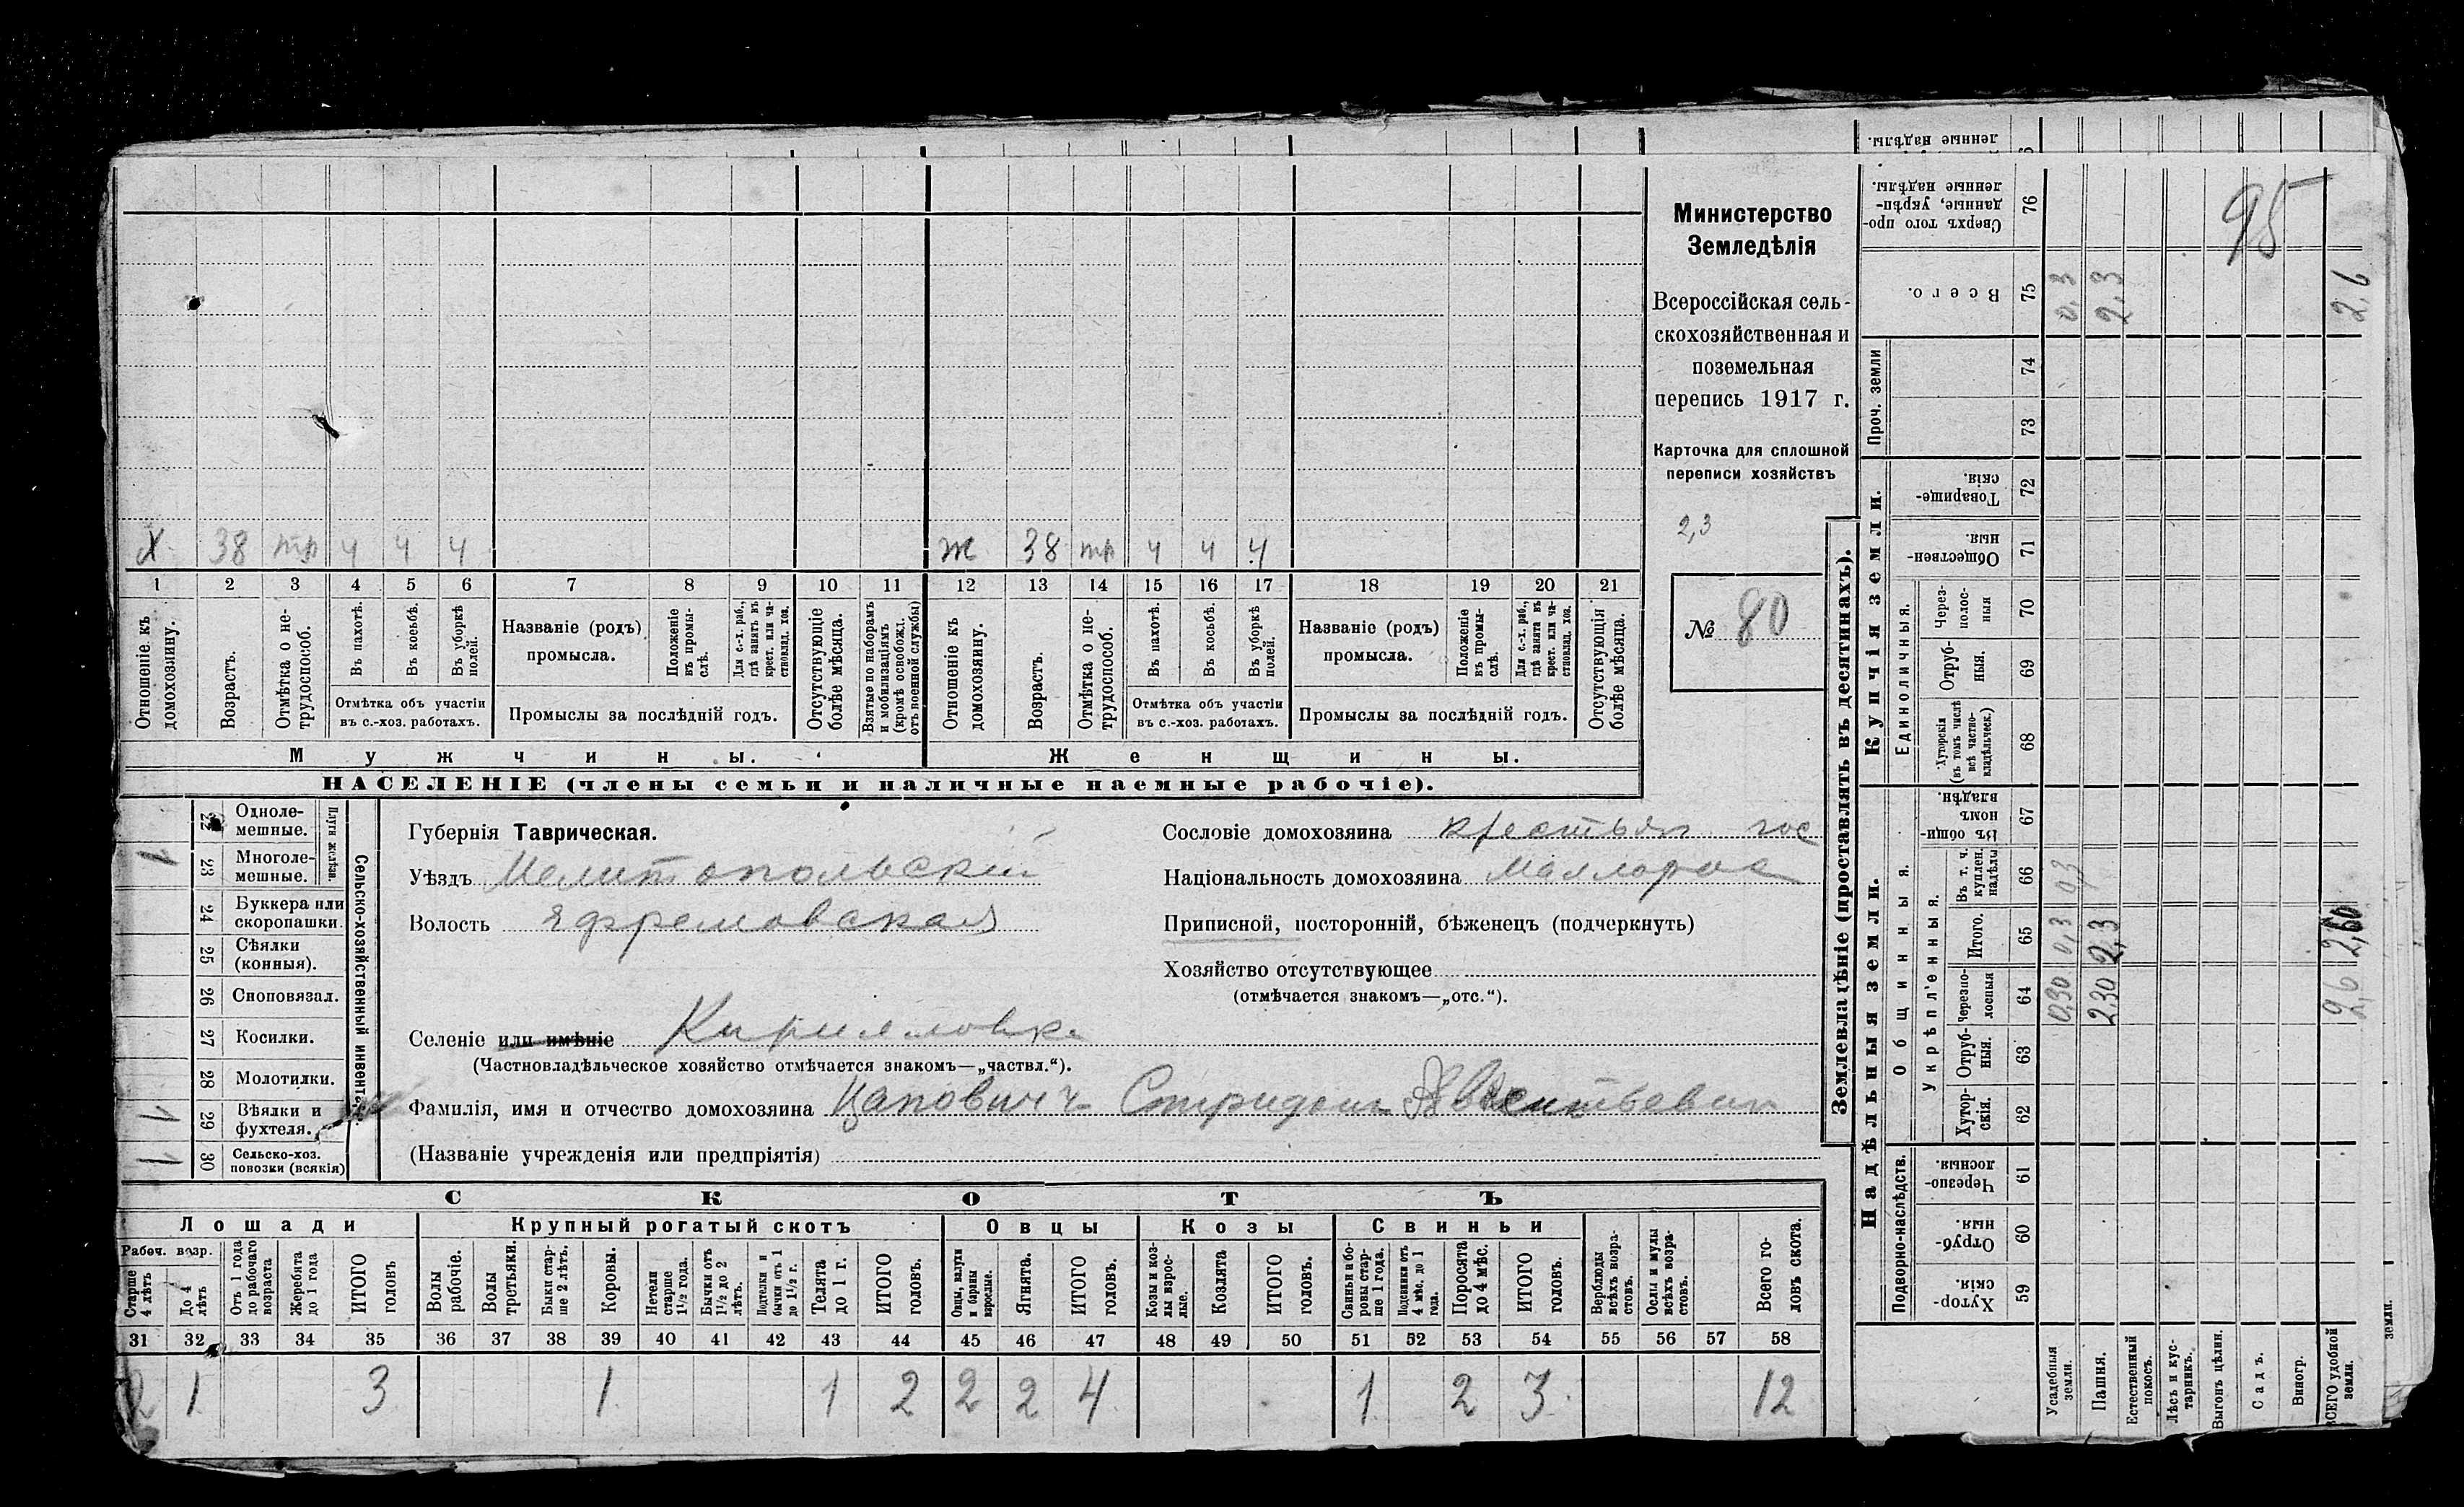 Министерство
Земледѣлія
Всероссійская сель-
скохозяйственная и
поземельная
перепись 1917 г.
Карточка для сплошной
переписи хозяйствъ
2,3
№ 80
X 38 тр ч ч ч
ж 38 тр ч ч ч
1 2 3 4 5 6 7 8 9 10 11 12 13 14 15 16 17 18 19 20 21
Отношеніе къ домохозяину.
Возрастъ.
Отмѣтка о не-трудоспособ.
Въ пахотѣ.
Въ косьбѣ.
Въ уборкѣ полей.
Отмѣтка объ участіи въ с.-хоз. работахъ.
Названіе (родъ) промысла.
Положеніе въ промы-слѣ.
Для с.-х. раб., гдѣ занятъ въ крест. или ча-стновлад. хоз.
Промыслы за послѣдній годъ.
Отсутствующіе болѣе мѣсяца.
Взятые по наборамъ и мобилизаціямъ (кромѣ освобожд. отъ военной службы)
Отношеніе къ домохозяину.
Возрастъ.
Отмѣтка о не-трудоспособ.
Въ пахотѣ.
Въ косьбѣ.
Въ уборкѣ полей.
Отмѣтка объ участіи въ с.-хоз. работахъ.
Названіе (родъ) промысла.
Положеніе въ промы-слѣ.
Для с.-х. раб., гдѣ занята въ крест. или ча-стновлад. хоз.
Промыслы за послѣдній годъ.
Отсутствующія болѣе мѣсяца.
Мужчины. Женщины.
НАСЕЛЕНІЕ (члены семьи и наличные наемные рабочіе).
22 Одноле-мешные.
23 Многоле-мешные. 1
Плуги желѣзн.
24 Буккера или скоропашки.
25 Сѣялки (конныя).
26 Сноповязал.
27 Косилки.
28 Молотилки.
29 Вѣялки и фухтеля. 1
30 Сельско-хоз. повозки (всякія) 1
Сельско-хозяйственный инвентарь.
Губернія Таврическая.
Уѣздъ Мелитопольскій
Волость Ефремовская
Селеніе или имѣніе Кирилловка
(Частновладѣльческое хозяйство отмѣчается знакомъ—„частвл.“).
Фамилія, имя и отчество домохозяина Цапович Спиридон
(Названіе учрежденія или предпріятія)
Сословіе домохозяина крестьян гос
Національность домохозяина Маллорос
Приписной, посторонній, бѣженецъ (подчеркнуть)
Хозяйство отсутствующее
(отмѣчается знакомъ—„отс.“).
СКОТЪ
Лошади Крупный рогатый скотъ Овцы Козы Свиньи
Рабоч. возр.
Старше 4 лѣтъ
До 4 лѣтъ
Отъ 1 года до рабочаго возраста
Жеребята до 1 года
ИТОГО головъ
Волы рабочіе.
Волы третьяки.
Быки стар-ше 2 лѣтъ.
Коровы.
Нетели старше 1½ года.
Бычки отъ 1½ до 2 лѣтъ.
Подтелки и бычки отъ 1 до 1½ г.
Телята до 1 г.
ИТОГО головъ.
Овцы, валухи и бараны взрослые.
Ягнята.
ИТОГО головъ.
Козы и коз-лы взрос-лые.
Козлята
ИТОГО головъ.
Свиньи и бо-ровы стар-ше 1 года.
Подсвинки отъ 4 мѣс. до 1 года.
Поросята до 4 мѣс.
ИТОГО головъ.
Верблюды всѣхъ возра-стовъ.
Ослы и мулы всѣхъ возра-стовъ.
Всего го-ловъ скота.
31 32 33 34 35 36 37 38 39 40 41 42 43 44 45 46 47 48 49 50 51 52 53 54 55 56 57 58
2 1 3 1 1 2 2 2 4 1 2 3 12
Землевладѣніе (проставлять въ десятинахъ).
Купчія земли.
Надѣльныя земли.
76 Сверхъ того про-данные, укрѣп-ленные надѣлы.
75 Всего. 0,3 2,3 2,6
95
Проч. земли
74
73
72 Товарище-скія.
71 Обществен-ныя.
Единоличныя.
70 Через-полос-ныя
69 Отруб-ныя.
68 Хуторскія (въ томъ числѣ всѣ частно-владѣльческ.)
Общинныя.
67 Въ общин-номъ владѣн.
Укрѣпленныя.
66 Въ т. ч. куплен. надѣлы 0,3
65 Итого. 0,3 2,3 2,60
64 Черезпо-лосныя 0,30 2,30 2,6
63 Отруб-ныя.
62 Хутор-скія.
Подворно-наслѣдств.
61 Черезпо-лосныя.
60 Отруб-ныя.
59 Хутор-скія.
Усадебныя земли.
Пашня.
Естественный покосъ.
Лѣсъ и кус-тарникъ.
Выгонъ цѣлин.
Садъ.
Виногр.
ВСЕГО удобной земли.
ленные надѣлы.
земли.